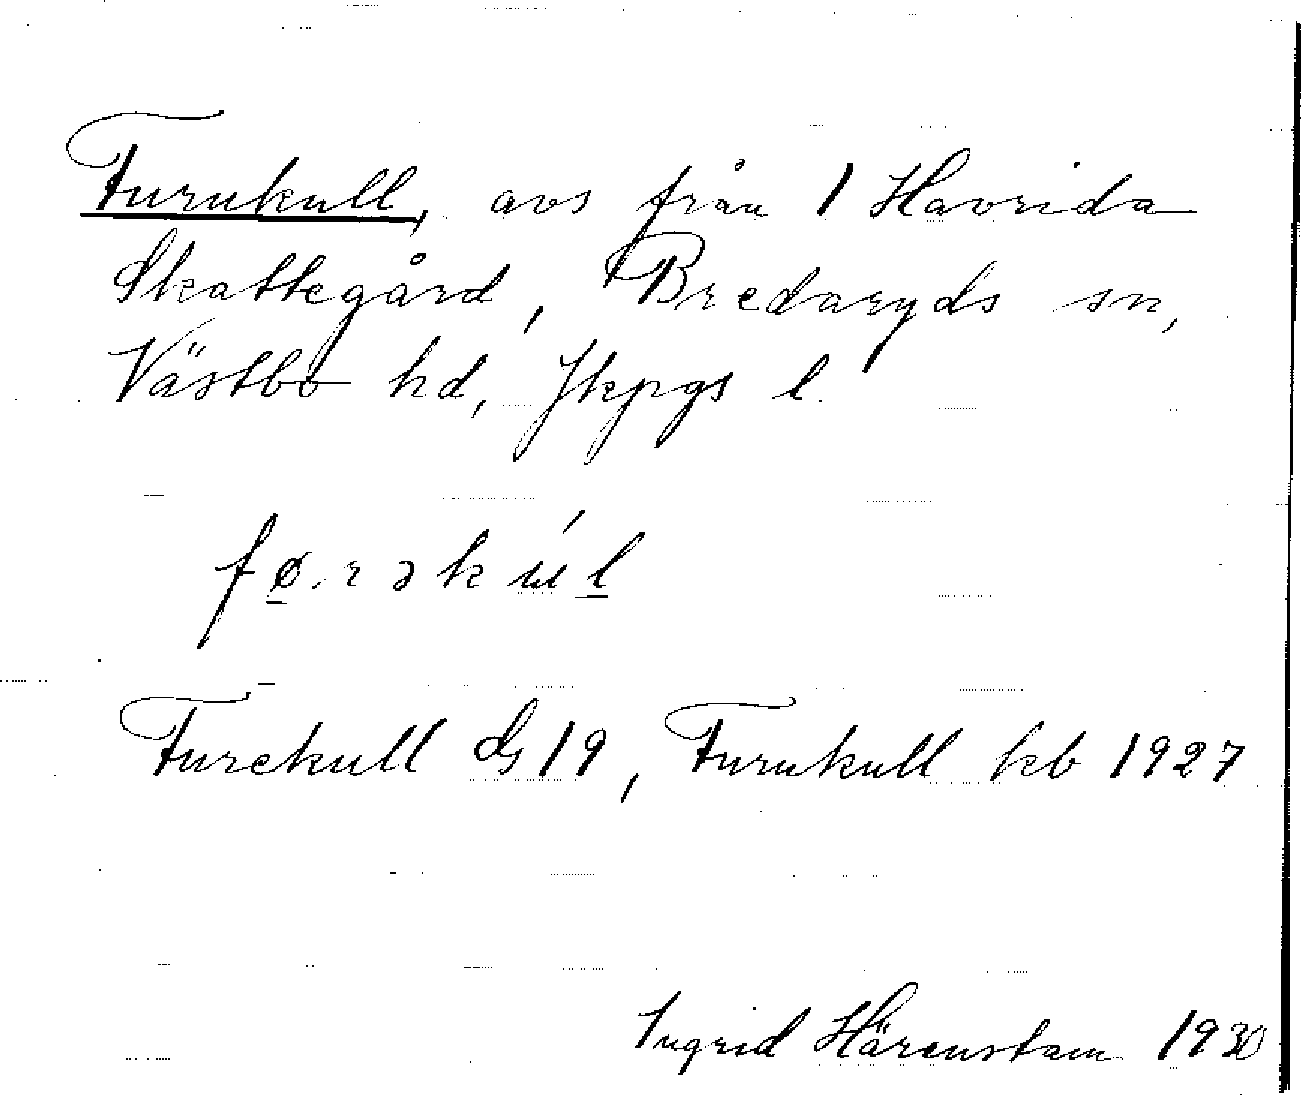 Furukull, avs från 1 Havrida
Skattegård, Bredaryds sn,
Västbo hd, Jkpgs l.
fø.rəkúl
Furekull Gs 19, Furukull kb 1927
Ingrid Härenstam 1930